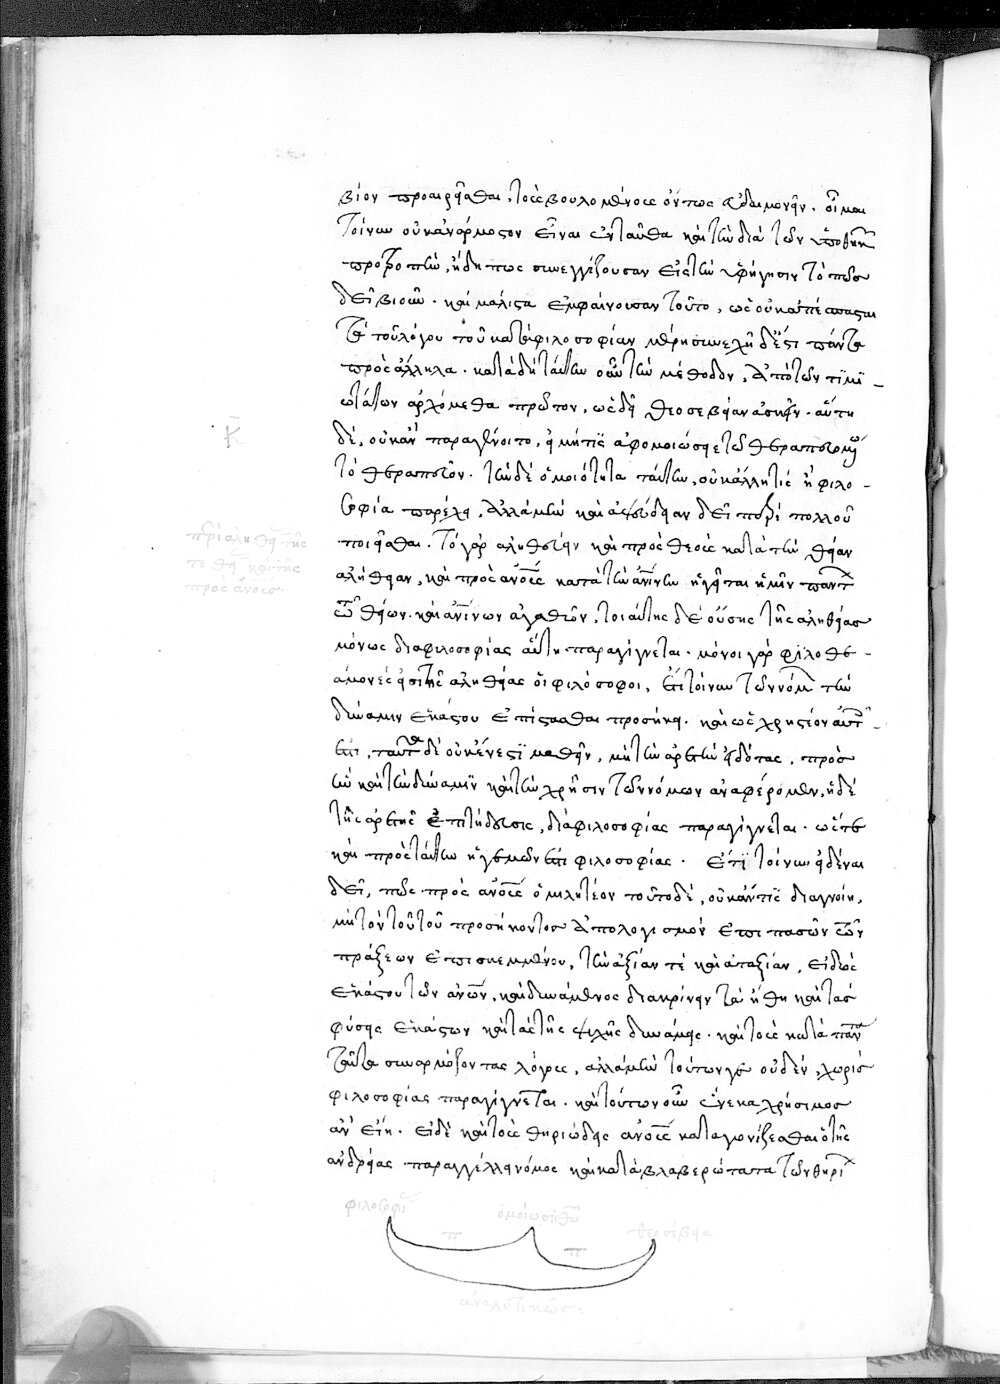 βίον προαιρεῖσθαι, τοῖς βουλομένοις ὄντως εὐδαιμονεῖν. οἶμαι
τοίνυν οὐκ ἀνάρμοστον εἶναι ἐνταῦθα καὶ τὴν διὰ τῶν ὑποθηκ
προτροπὴν, ἤδη πως συνεγγίζουσαν εἰς τὴν ὑφήγησιν τὸ πῶς
δεῖ βιοῦν. καὶ μάλιστα ἐμφαίνουσαν τοῦτο, ὡς οὐκ ἀπέσπασται
τὰ τοῦ λόγου τοῦ κατὰ φιλοσοφίαν μέρη συνεχῆ δέ ἐστι πάντα
πρὸς ἄλληλα. κατὰ δὴ ταύτην οὖν τὴν μέθοδον, ἀπὸ τῶν τιμι-
ωτάτων ἀρχόμεθα πρῶτον, ὡς δεῖ θεοσέβειαν ἀσκεῖν. αὕτη
δὲ, οὐκ ἂν παραγένοιτο, εἰ μή τις ἀφομοιώσειε τῷ θεραπευομένῳ
τὸ θεραπεῦον. τὴν δὲ ὁμοιότητα ταύτην, οὐκ ἄλλη τις ἢ φιλο-
σοφία παρέχει, ἀλλὰ μὴν καὶ ἀψεύδειαν δεῖ περὶ πολλοῦ
ποιεῖσθαι. τὸ γὰρ ἀληθεύειν καὶ πρὸς θεοὺς κατὰ τὴν θείαν
ἀλήθειαν, καὶ πρὸς ἀνους κατὰ τὴν ἀνίνην ἡγεῖται ἡμῖν παντ
τῶν θείων καὶ ἀνίνων ἀγαθῶν, τοιαύτης δὲ οὔσης τῆς ἀληθείας
μόνως διὰ φιλοσοφίας αὕτη παραγίγνεται. μόνοι γὰρ φιλοθε-
άμονές εἰσι τῆς ἀληθείας οἱ φιλόσοφοι, ἔτι τοίνυν τῶν νόμων τὴν
δύναμιν ἑκάστου ἐπίστασθαι προσήκει. καὶ ὡς χρηστέον αὐτ
ἐστι, ταῦτα δὲ οὐκ ἔνεστι μαθεῖν, μὴ τὴν ἀρετὴν εἰδότας, πρὸς
ἣν καὶ τὴν δύναμιν καὶ τὴν χρῆσιν τῶν νόμων ἀναφέρομεν, ἡ δὲ
τῆς ἀρετῆς ἐπιτήδευσις, διὰ φιλοσοφίας παραγίγνεται. ὥστε
καὶ πρὸς ταύτην ἡγεμών ἐστι φιλοσοφίας. ἔτι τοίνυν εἰδέναι
δεῖ, πῶς πρὸς ἀνους ὁμιλητέον τοῦτο δὲ, οὐκ ἄν τις διαγνοίη,
μὴ τὸν τοῦ τοῦ προσήκοντος ἀπολογισμὸν ἐπὶ πασῶν τῶν
πράξεων ἐπισκεμμένου, τὴν ἀξίαν τὲ καὶ ἀπαξίαν, εἰδὼς
ἑκάστου τῶν ἀνων, καὶ δυνάμενος διακρίνειν τὰ ἤθη καὶ τὰς
φύσεις ἑκάστων καὶ τὰς τῆς ψυχῆς δυνάμεις. καὶ τοὺς κατὰ παντ
ταῦτα συναρμόζοντας λόγους, ἀλλὰ μὴν τούτων γε οὐδὲν, χωρὶς
φιλοσοφίας παραγίγνεται. καὶ τούτων οὖν ἕνεκα χρήσιμος
ἂν εἴη. εἰ δὲ καὶ τοὺς θηριώδεις ἀνους καταγωνίζεσθαι ὁ τῆς
ἀνδρείας παραγγέλλει νόμος καὶ κατὰ βλαβερώτατα τῶν θηρί
φιλοσοφί
ὁμοίωσις θῶ
θεοσέβεια
π
π
ἀναλυτικῶς: